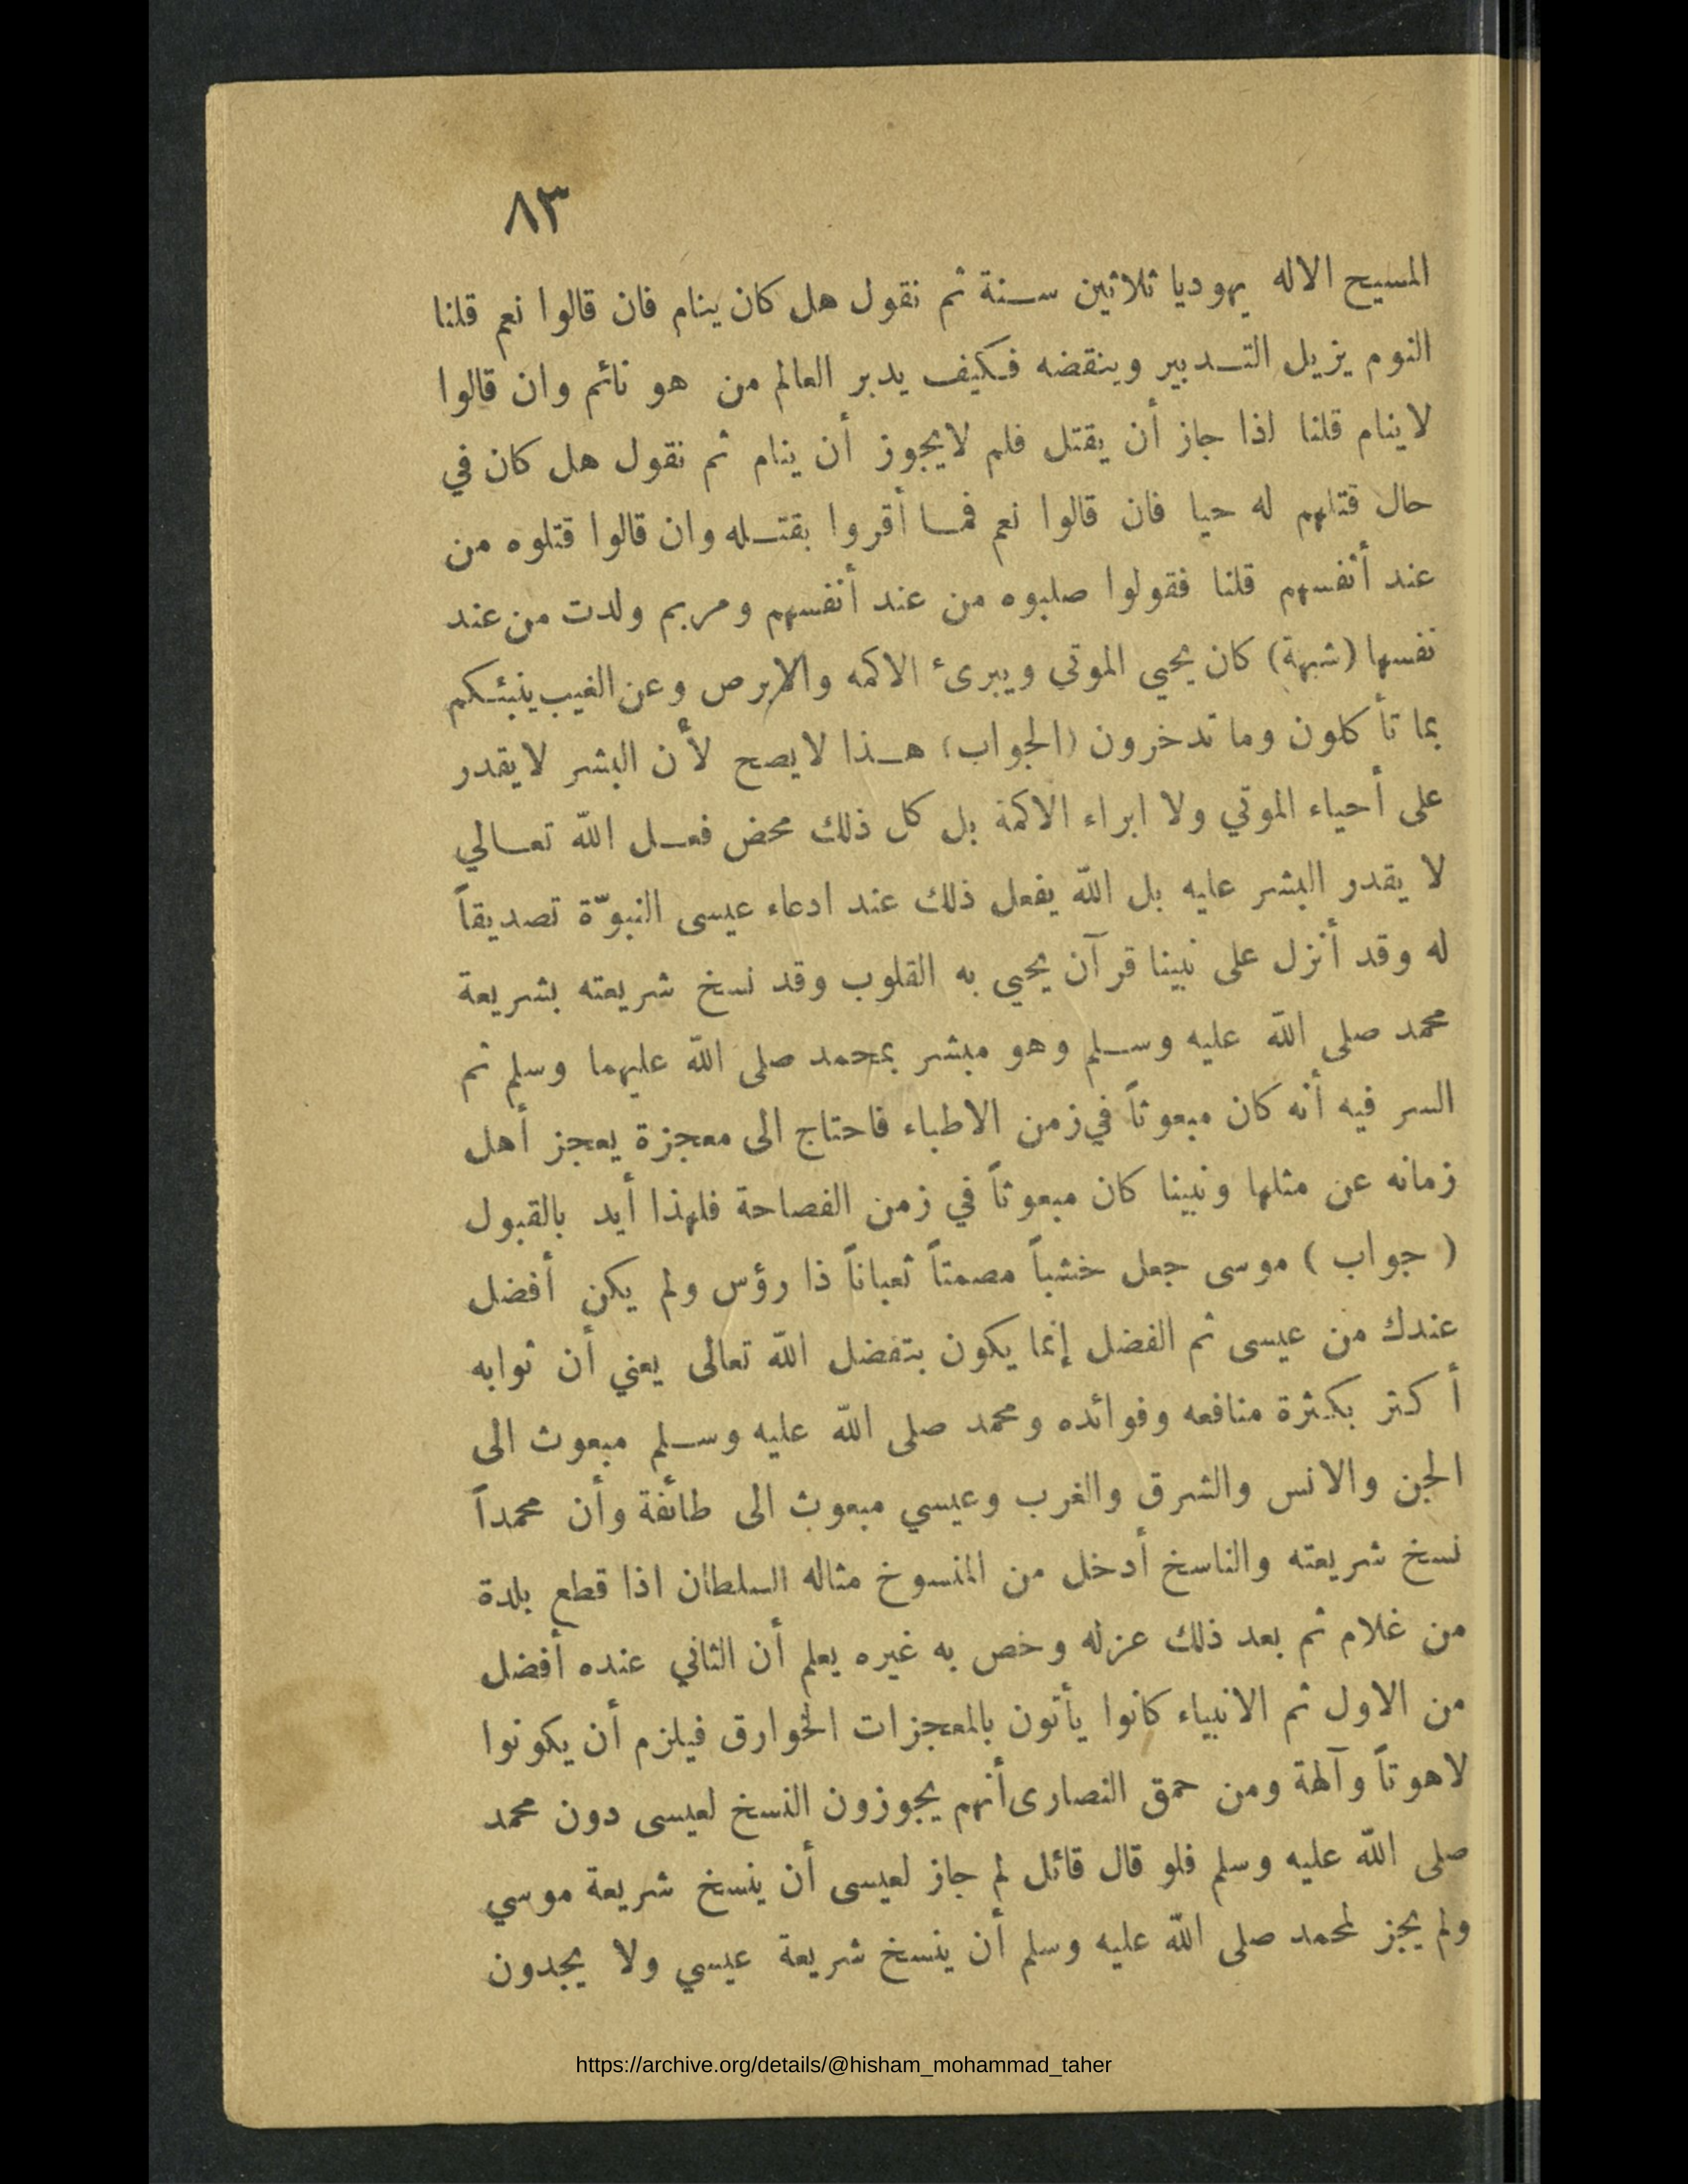 ٨٣
المسيح الاله يهوديا ثلاثين سنة ثم نقول هل كان ينام فان قالوا نعم قلنا
النوم يزيل التدبير وينقضه فكيف يدبر العالم من هو نائم وان قالوا
لاينام قلنا اذا جاز أن يقتل فلم لايجوز أن ينام ثم نقول هل كان في
حال قتلهم له حيا فان قالوا نعم فما أقروا بقتله وان قالوا قتلوه من
عند أنفسهم قلنا فقولوا صلبوه من عند أنفسهم ومريم ولدت من عند
نفسها (شبهة) كان يحيي الموتي ويبرئ الاكمه والابرص وعن الغيب ينبئكم
بما تأكلون وما تدخرون (الجواب) هذا لايصح لأن البشر لايقدر
على أحياء الموتي ولا ابراء الاكمة بل كل ذلك محض فعل الله تعالي
لا يقدر البشر عليه بل الله يفعل ذلك عند ادعاء عيسى النبوّة تصديقاً
له وقد أنزل على نبينا قرآن يحيي به القلوب وقد نسخ شريعته بشريعة
محمد صلى الله عليه وسلم وهو مبشر بمحمد صلى الله عليهما وسلم ثم
السر فيه أنه كان مبعوثاً في زمن الاطباء فاحتاج الى معجزة يعجز أهل
زمانه عن مثلها ونبينا كان مبعوثاً في زمن الفصاحة فلهذا أيد بالقبول
( جواب ) موسى جعل خشباً مصمتاً ثعباناً ذا رؤس ولم يكن أفضل
عندك من عيسى ثم الفضل إنما يكون بتفضل الله تعالى يعني أن ثوابه
أكثر بكثرة منافعه وفوائده ومحمد صلى الله عليه وسلم مبعوث الى
الجن والانس والشرق والغرب وعيسي مبعوث الى طائفة وأن محمداً
نسخ شريعته والناسخ أدخل من المنسوخ مثاله السلطان اذا قطع بلدة
من غلام ثم بعد ذلك عزله وخص به غيره يعلم أن الثاني عنده أفضل
من الاول ثم الانبياء كانوا يأتون بالمعجزات الخوارق فيلزم أن يكونوا
لاهوتاً وآلهة ومن حمق النصارى أنهم يجوزون النسخ لعيسى دون محمد
صلى الله عليه وسلم فلو قال قائل لم جاز لعيسى أن ينسخ شريعة موسي
ولم يجز لمحمد صلى الله عليه وسلم أن ينسخ شريعة عيسي ولا يجدون
https://archive.org/details/@hisham_mohammad_taher